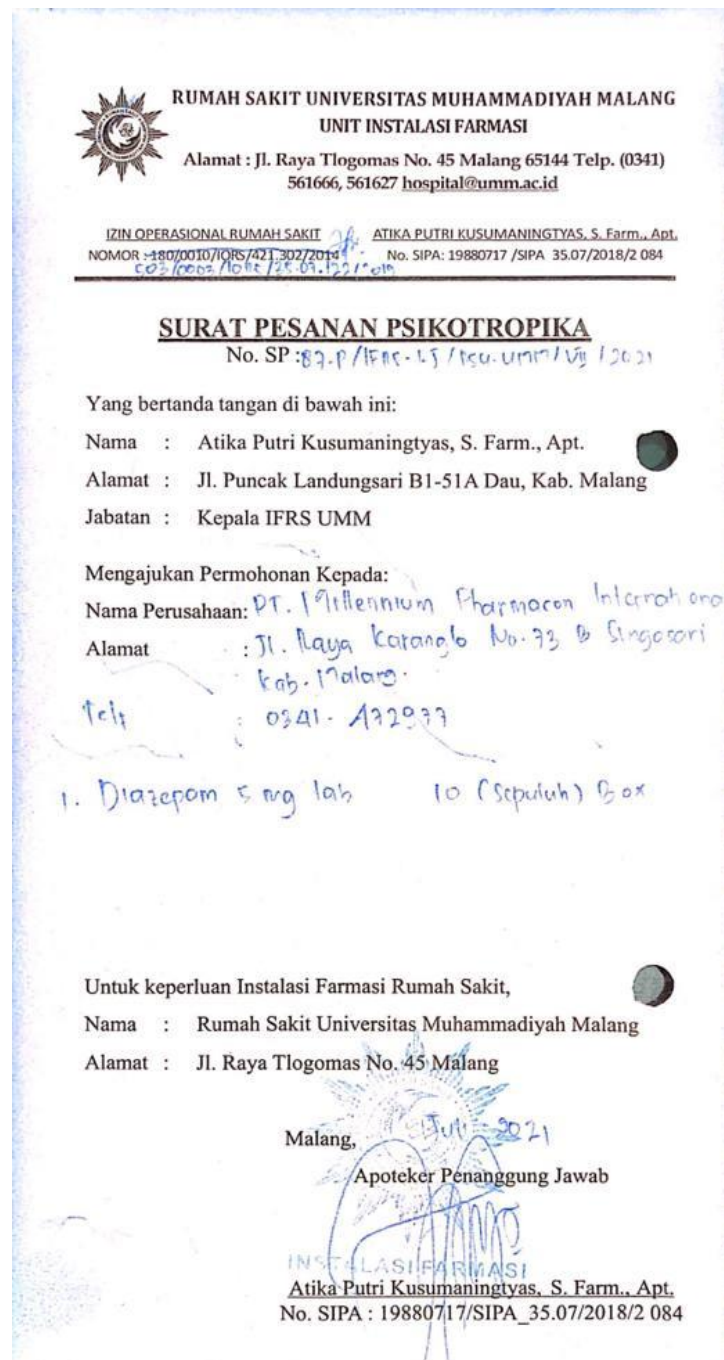 RUMAH SAKIT UNIVERSITAS MUHAMMADIYAH MALANG
UNIT INSTALASI FARMASI
Alamat : Jl. Raya Tlogomas No. 45 Malang 65144 Telp. (0341)
561666, 561627 hospital@umm.ac.id
IZIN OPERASIONAL RUMAH SAKIT
NOMOR : 180/0010/IORS/421.302/2014
ATIKA PUTRI KUSUMANINGTYAS, S. Farm., Apt.
No. SIPA: 19880717 /SIPA 35.07/2018/2 084
SURAT PESANAN PSIKOTROPIKA
No. SP : / 2021
Yang bertanda tangan di bawah ini:
Nama : Atika Putri Kusumaningtyas, S. Farm., Apt.
Alamat : Jl. Puncak Landungsari B1-51A Dau, Kab. Malang
Jabatan : Kepala IFRS UMM
Mengajukan Permohonan Kepada:
Nama Perusahaan: PT. Millennium Pharmacon Internationa
Alamat : Jl. Raya Karanglo No. 73 B Singosari
Kab. Malang.
Telp : 0341-
1. Diazepam 5 mg tab 10 (Sepuluh) Box
Untuk keperluan Instalasi Farmasi Rumah Sakit,
Nama : Rumah Sakit Universitas Muhammadiyah Malang
Alamat : Jl. Raya Tlogomas No. 45 Malang
Malang, Juli 2021
Apoteker Penanggung Jawab
INSTALASI FARMASI
Atika Putri Kusumaningtyas, S. Farm., Apt.
No. SIPA : 19880717/SIPA_35.07/2018/2 084